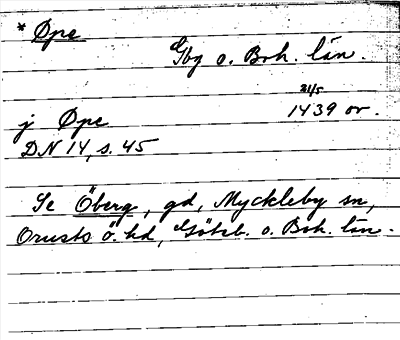 * Øpe
Gbg o. Boh. län.
21/5
j Øpe 1439 or.
DN 14, s. 45
Se Öberg, gd, Myckleby sn,
Orusts ö. hd, Göteb. o. Boh. län.